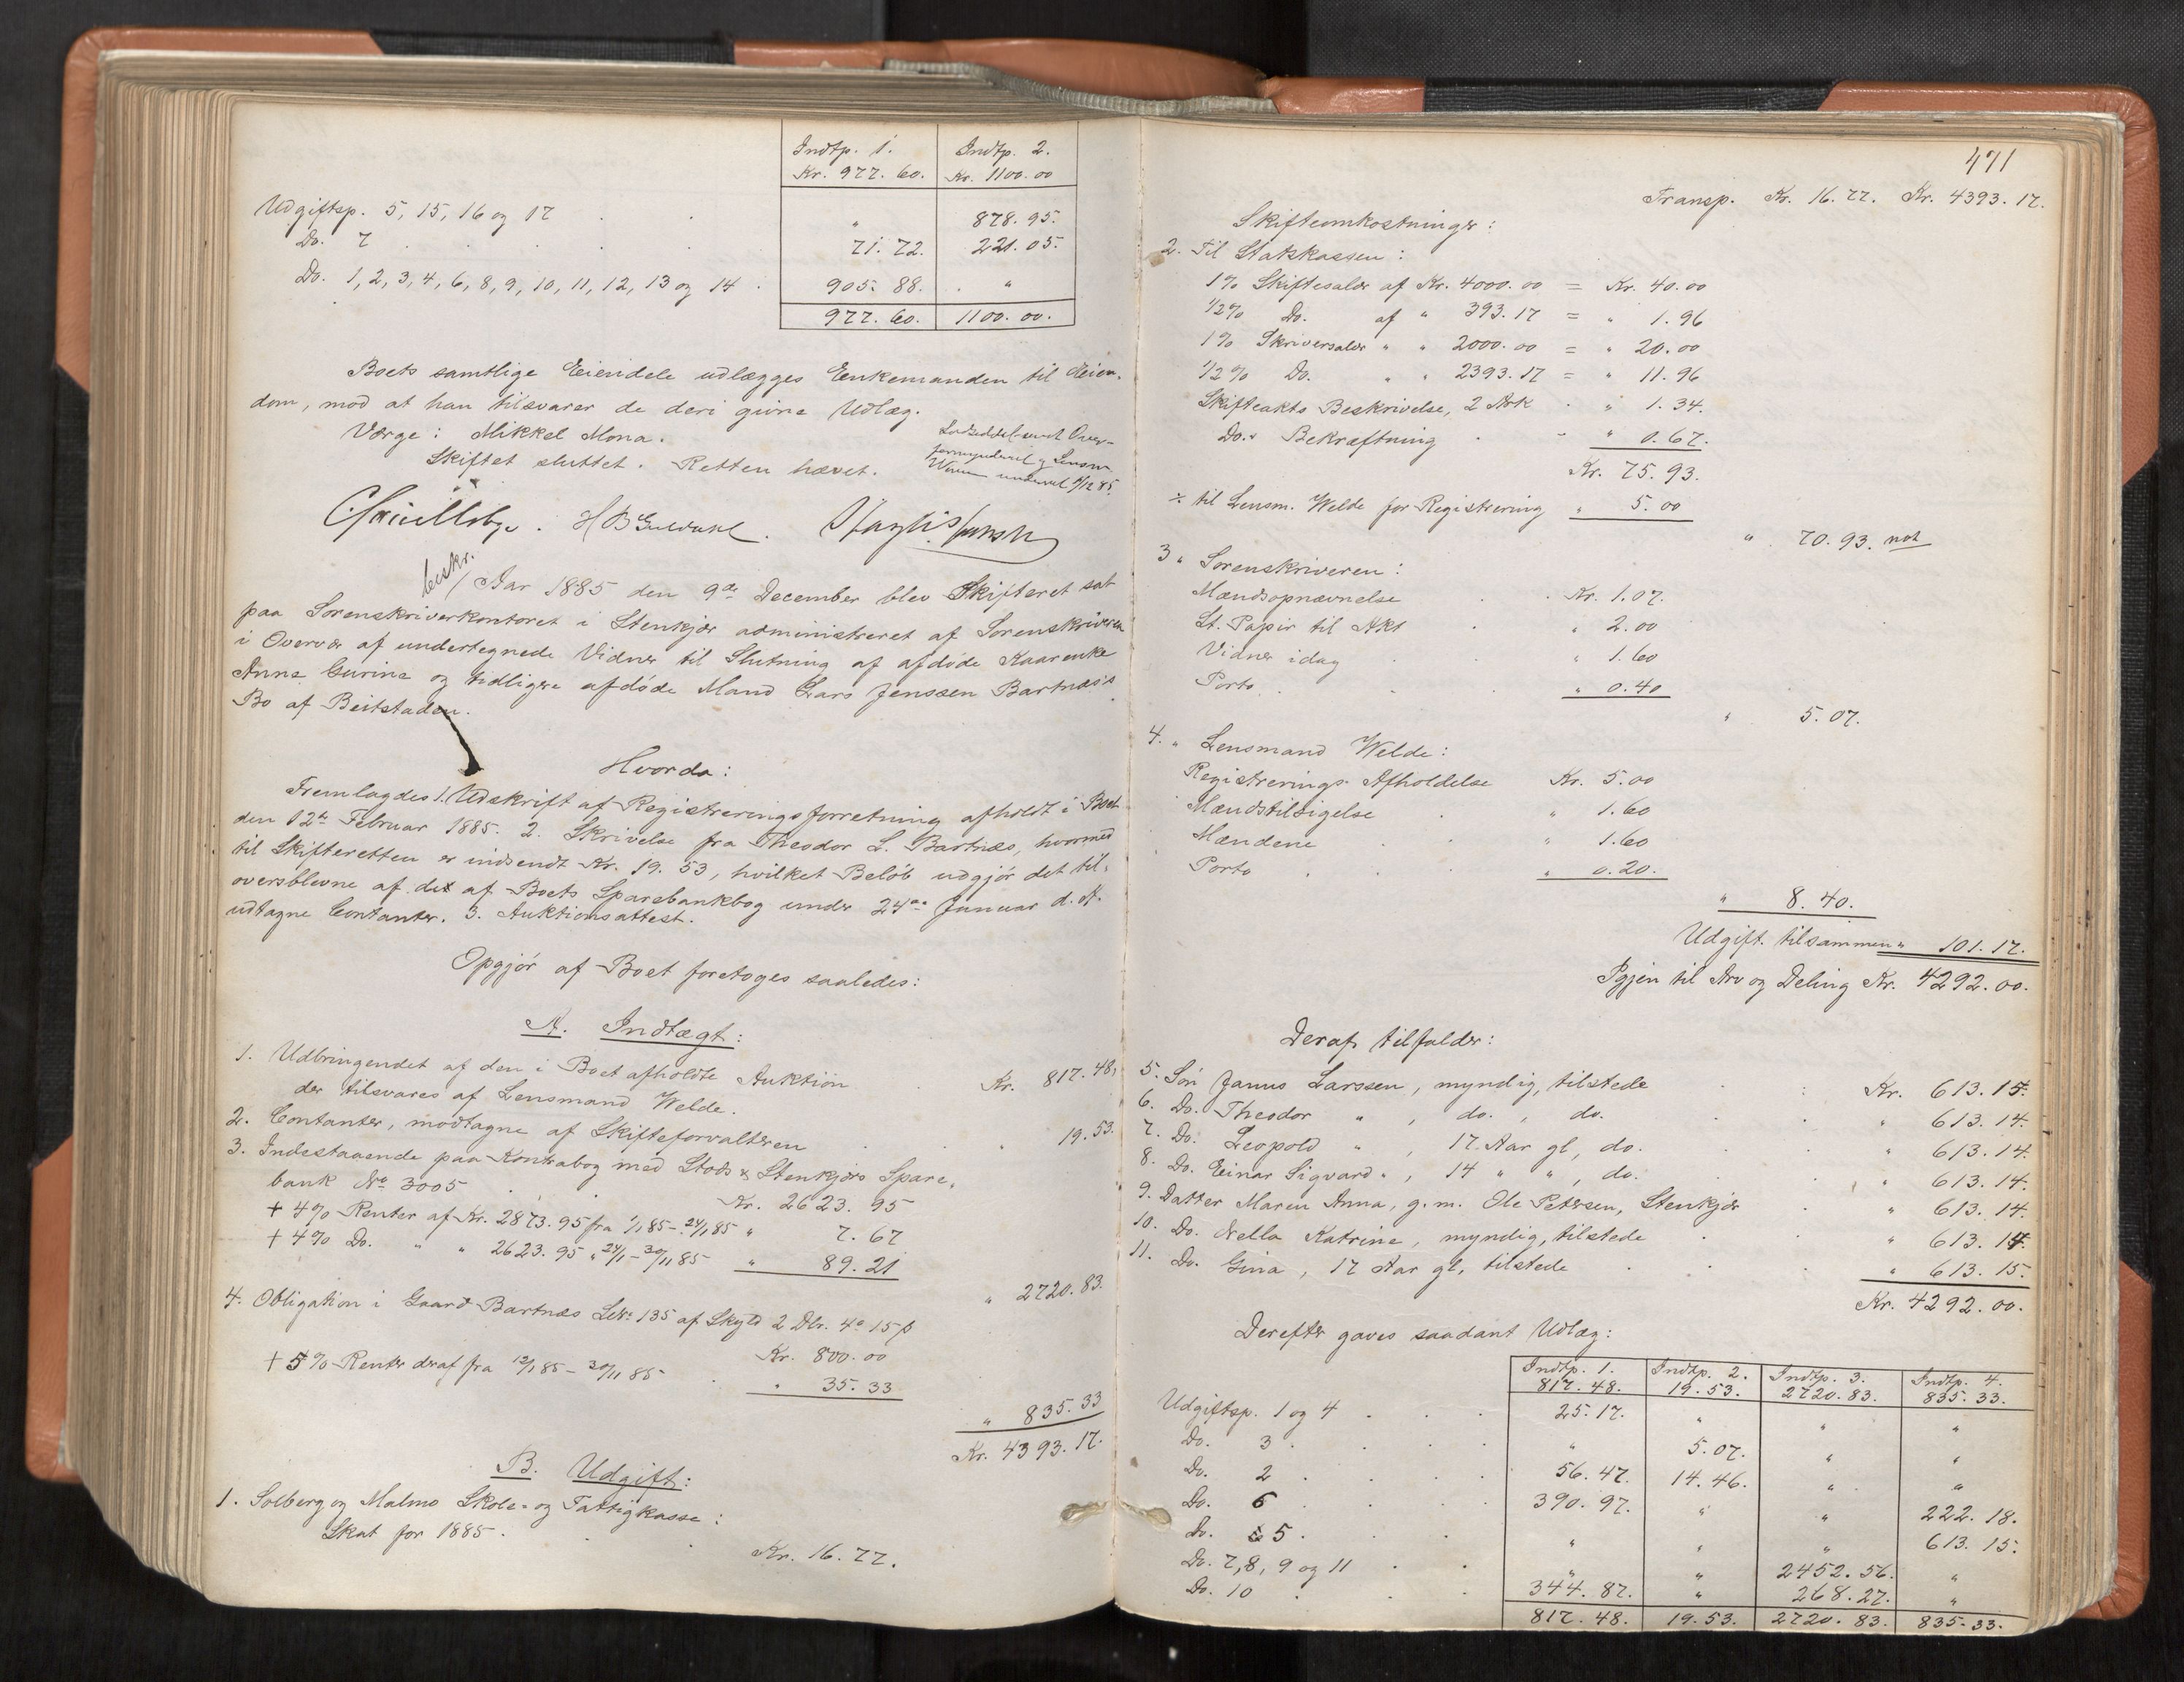 Indtp. 1. Indtp. 2.
Kr. 977. 60. Kr. 1100. 00
Udgiftsp. 5, 15, 16 og 17 . . " 878. 95.
Do. 7 . . . . 71. 72. 221. 05.
Do. 1, 2, 3, 4, 6, 8, 9, 10, 11, 12, 13 og 14 . 905. 88. . "
977. 60. 1100. 00.
Boets samtlige Eiendele udlægges Enkemanden til Eien-
dom, mod at han tilsvarer de deri givne Udlæg.
Værge: Mikkel Mona.
Skiftet sluttet. Retten hævet.
Lodseddel sendt Over-
formynderiet og Lensm.
underret. 9/12 85.
H B Guldahl.
beskr.
/ Aar 1885 den 9de December blev Skifteret sat
paa Sorenskriverkontoret i Stenkjær administreret af Sorenskriveren
i Overvær af undertegnede Vidner til Slutning af afdøde Kaarenke
Anne Gurine og tidligere afdøde Mand Lars Jenssen Bartnæs's
Bo af Beitstaden.
Hvorda:
Fremlagdes 1. Udskrift af Registreringsforretning afholdt i Boet
den 12te Februar 1885. 2. Skrivelse fra Theodor L. Bartnæs, hvormed
til Skifteretten er indsendt Kr. 19. 53, hvilket Beløb udgjør det til-
oversblevne af det af Boets Sparebankbog under 24de Januar d. A.
udtagne Contanter. 3. Auktionsattest.
Opgjør af Boet foretoges saaledes:
A. Indtægt:
1. Udbringendet af den i Boet afholdte Auktion . Kr. 817. 48,
der tilsvares af Lensmand Welde.
2. Contanter, modtagne af Skifteforvalteren . . 19. 53.
3. Indestaaende paa Kontrabog med Stods & Stenkjærs Spare-
bank No 3005 . Kr. 2623. 95
+ 4% Renter af Kr. 2873. 95 fra 1/1 85 - 24/1 85 " 7. 67
+ 4% Do. " " 2623. 95 " 24/1 - 30/11 85 " 89. 21
" 2720. 83.
4. Obligation i Gaard Bartnæs Lbn. 135 af Skyld 2 Dlr. 4 o 15 ß
Kr. 800. 00
+ 5% Renter deraf fra 12/1 85 - 30/11 85 . " 35. 33
" 835. 33
Kr. 4393. 17.
B. Udgift:
1. Solberg og Malmo Skole- og Fattigkasse:
Skat for 1885 . . . Kr. 16. 77.
471
Transp. Kr. 16. 77. Kr. 4393. 17.
Skifteomkostninger:
2. Til Statskassen:
1% Skiftesalær af Kr. 4000. 00 = Kr. 40. 00
1/2% Do. af " 393. 17 = " 1. 96
1% Skriversalær " " 2000. 00 = " 20. 00
1/2% Do. " " 2393. 17 = " 11. 96
Skifteakts Beskrivelse, 2 Ark . " 1. 34.
Do.s Bekræftning . - " 0. 67.
Kr. 75. 93.
÷ til Lensm. Welde for Registrering " 5. 00
" 70. 93. not
3 " Sorenskriveren:
Mændsopnævnelse . . Kr. 1. 07.
St. Papir til Akt . " 2. 00
Vidner idag . . " 1. 60
Porto . . . " 0. 40
" 5. 07.
4. " Lensmand Welde:
Registrerings Afholdelse Kr. 5. 00
Mændstilsigelse . " 1. 60
Mændene . . " 1. 60
Porto . . " 0. 20.
" 8. 40.
Udgift tilsammen " 101. 17.
Igjen til Arv og Deling Kr. 4292. 00.
Deraf tilfalder:
5. Søn Janus Larssen, myndig, tilstede : Kr. 613. 15.
6. Do. Theodor " , do. , do. . . " 613. 14.
7. Do. Leopold " , 17 Aar gl., do. . . " 613. 14.
8. Do. Einar Sigvard " , 14 " " , do. . . " 613. 14.
9. Datter Maren Anna, g. m. Ole Petersen, Stenkjær . " 613. 14.
10. Do. Nella Katrine, myndig, tilstede . . " 613. 14.
11. Do. Gina, 17 Aar gl, tilstede . . " 613. 15.
Kr. 4292. 00.
Derefter gaves saadant Udlæg:
Indtp. 1. Indtp. 2. Indtp. 3. Indtp. 4.
817. 48. 19. 53. 2720. 83. 835. 33.
Udgiftsp. 1 og 4 . . . 25. 17. " " "
Do. 3 . . . . " 5. 07. " "
Do. 2 . . . . 56. 47. 14. 46. " "
Do. 6 . . . . 390. 97. " " 222. 18.
Do. 5 . . . " " " 613. 15.
Do. 7, 8, 9 og 11 . . " " 2452. 56. "
Do. 10 . . 344. 87. " 268. 27. "
817. 48. 19. 53. 2720. 83. 835. 33.